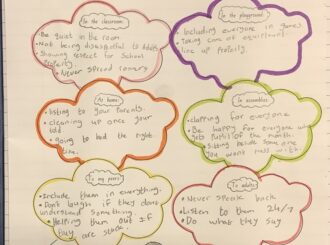 In the classroom
• Be quiet in the room
• Not being disrespectful to adults
• Showing respect for School
Property.
• Never spread rumors
In the playground
• Including everyone in games.
• Taking care of equipment.
• line up properly.
At home:
• listing to your parents.
• cleaning up once your
told
• going to bed the right
time.
In assemblies
• clapping for everyone
• Be happy for everyone who
gets pupil of the month.
• Sitting beside some one
you wont mess with
To my peers
• Include them in everything.
• Don't laugh if they dont
understand something.
• Helping them out if
they are stuck
To adults
• Never speak back
• Listen to them 24/7
• Do what they say